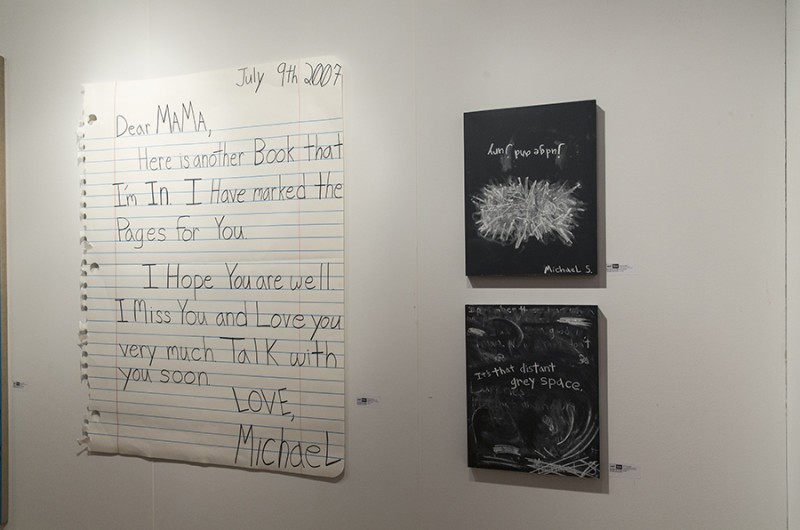 July 9th 2007
Dear MAMA,
Here is another Book that
I'm In. I Have marked the
Pages for You.
I Hope You are well.
I Miss You and Love you
very much. Talk with
you soon.
LOVE,
Michael
judge and jury
Michael S.
It's that distant
grey space.